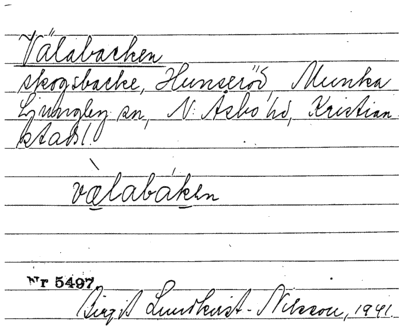 Välabacken
skogsbacke, Hunseröd, Munka
Ljungby sn, N. Åsbo hd, Kristian
stads l.
vælabáken
Nr 5497
Birgit Lundkvist-Nilsson, 1941.